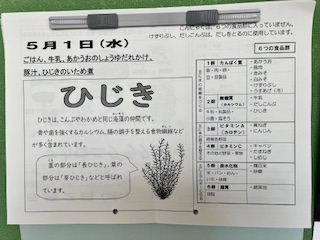 こんだては、６つの食品群に入っていません。
けずりぶし、だしこんぶは、だしをとるのに使用しています。
５月１日（水）
ごはん、牛乳、あかうおのしょうゆだれかけ、
豚汁、ひじきのいため煮
ひじき
ひじきは、こんぶやわかめと同じ海藻の仲間です。
骨や歯を強くするカルシウム、腸の調子を整える食物繊維など
が多く含まれています。
茎の部分は「長ひじき」、葉
の部分は「芽ひじき」などと呼ばれ
ています。
６つの食品群
１群 たんぱく質
・あかうお
・豚肉
２群 無機質
（カルシウム）
・牛乳
・だしこんぶ
・ひじき
３群 ビタミンＡ
（カロテン）
・青ねぎ
・にんじん
４群 ビタミンＣ
・キャベツ
・たまねぎ
・しめじ
５群 炭水化物
・精白米
・砂糖
６群 脂質